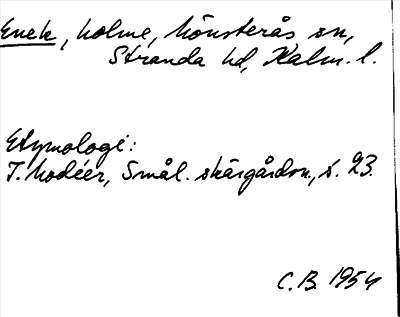 Enek, holme, Mönsterås sn,
Stranda hd, Kalm. l.
Etymologi:
I. Modéer, Smål. skärgårdsn., s. 23.
C.B. 1954